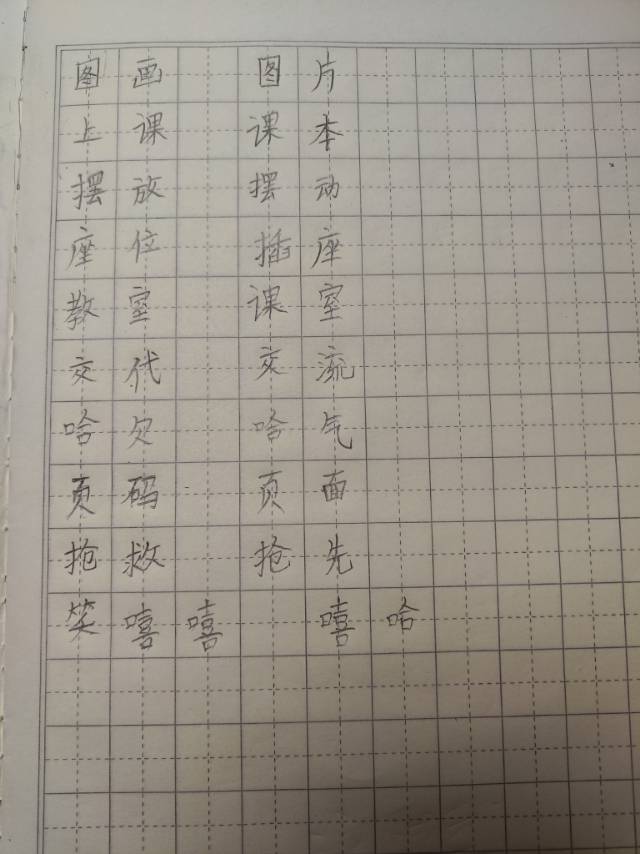 图画 图片
上课 课本
摆放 摆动
座位 插座
教室 课室
交代 交流
哈欠 哈气
页码 页面
抢救 抢先
笑嘻嘻 嘻哈